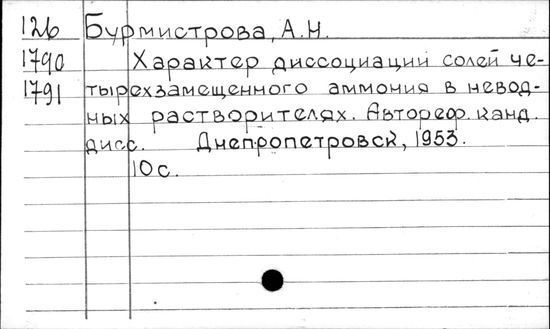 126 Бурмистрова, А.Н.
1790 Характер диссоциации солей че-
1791 тырехзамещенного аммония в невод-
ных растворителях. Автореф. канд.
дисс. Днепропетровск, 1953.
10 с.